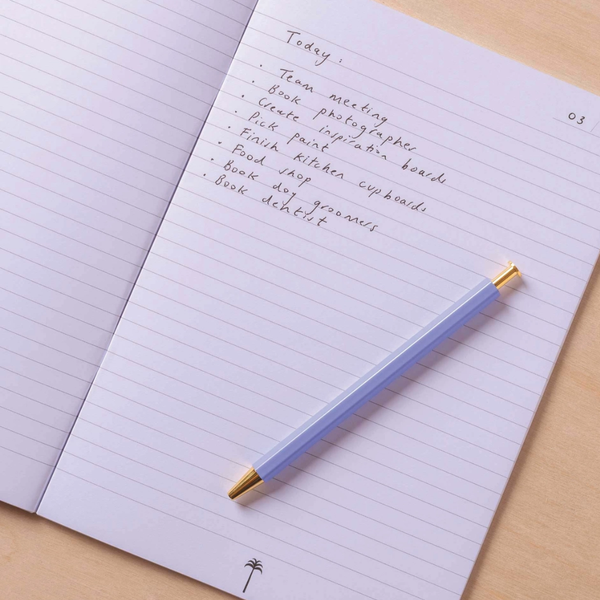 03
Today:
· Team meeting
· Book photographer
· Create inspiration boards
· Pick paint
· Finish kitchen cupboards
· Food shop
· Book dog groomers
· Book dentist